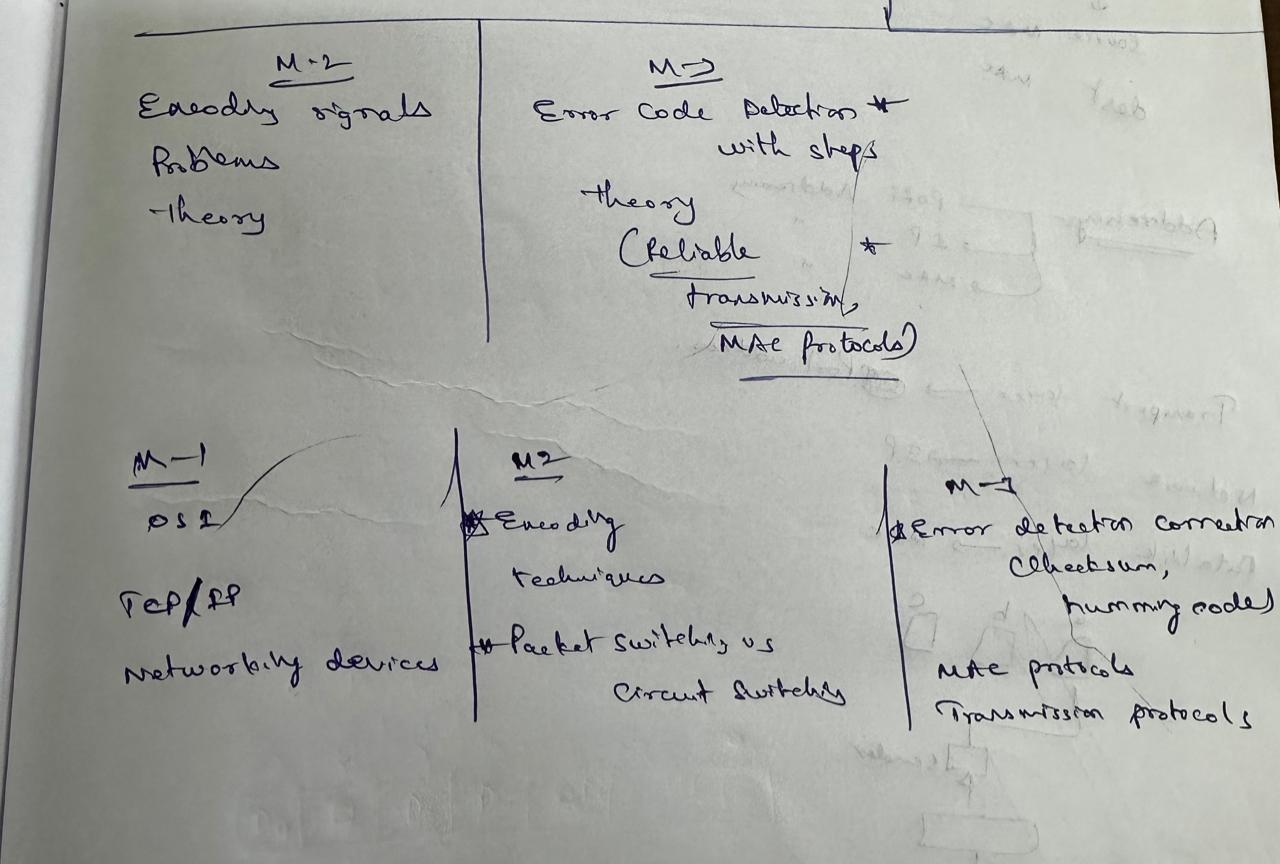 M-2
Encoding signals
Problems
Theory
M-3
Error Code Detection *
with steps
Theory
(Reliable *
transmission,
MAC protocols)
M-1
OSI
TCP/IP
Networking devices
M2
* Encoding
techniques
* Packet switching vs
circuit switching
M-3
* Error detection correction
Checksum,
humming codes
MAC protocols
Transmission protocols